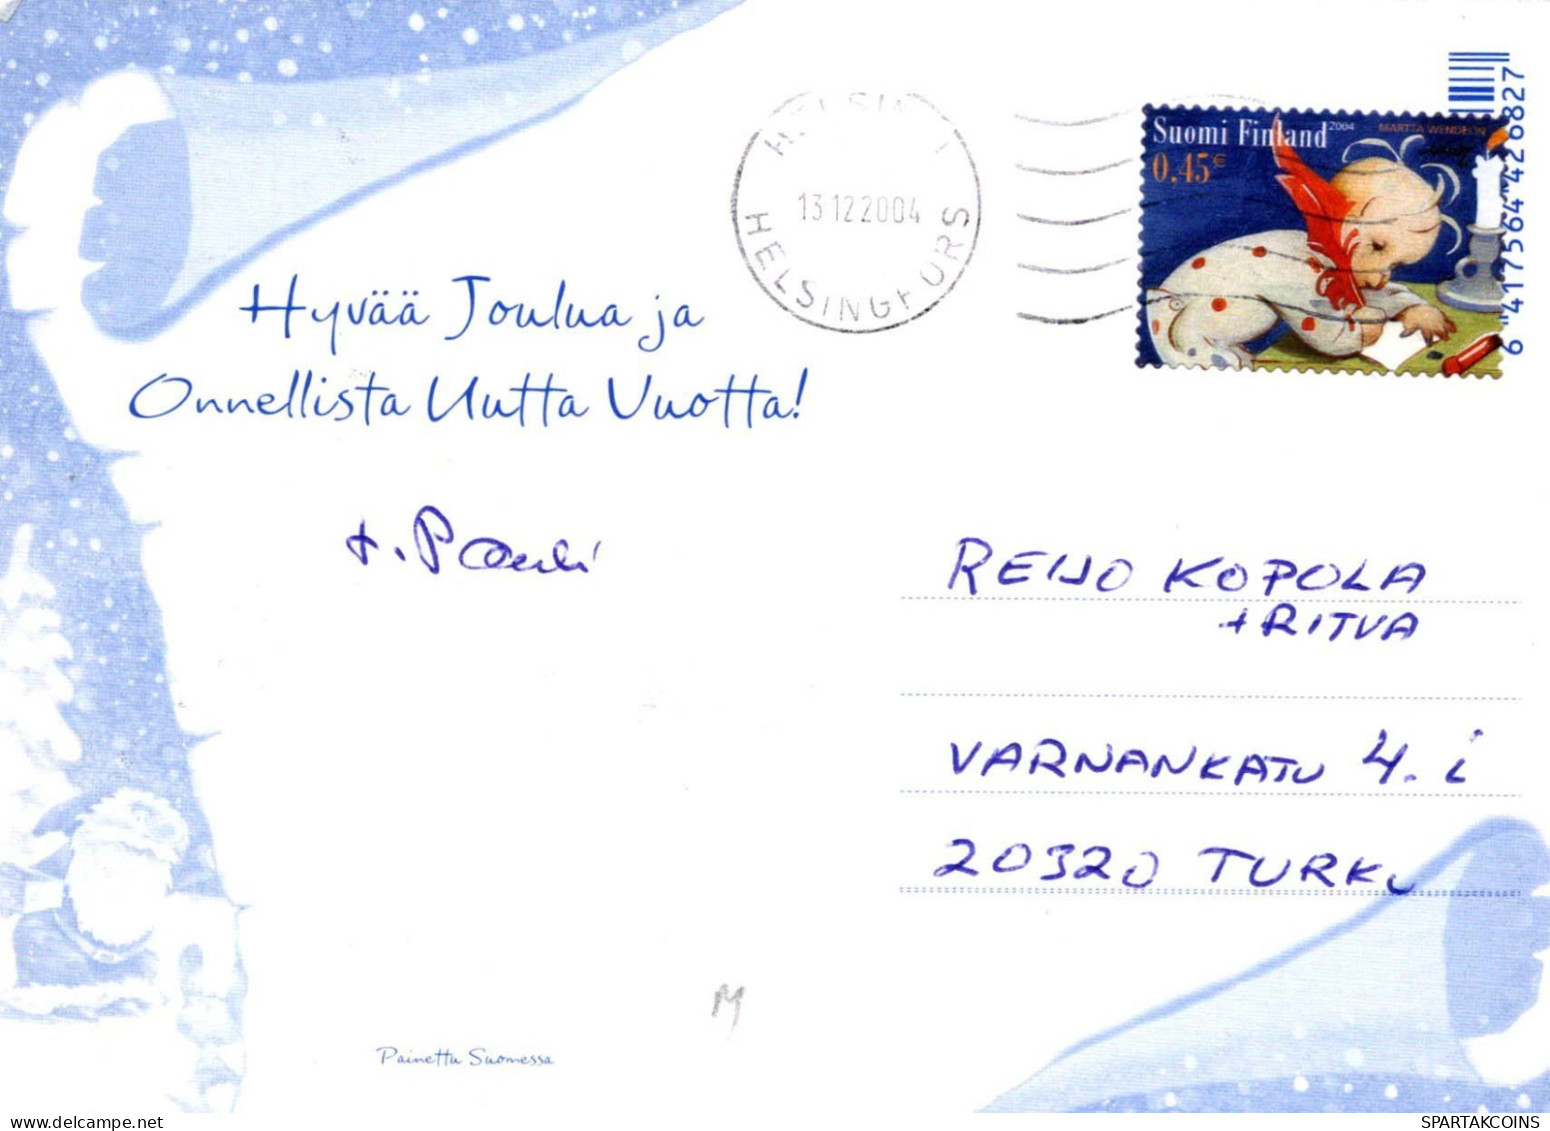 HELSINKI
13.12.2004
HELSINGFORS
Suomi Finland 2004
MARTTA WENDELIN
0,45€
6 417564 426827
Hyvää Joulua ja
Onnellista Uutta Vuotta!
t. Pauli
REIJO KOPOLA
+ RITVA
VARNANKATU 4. i
20320 TURKU
M
Painettu Suomessa
delcampe.net
SPARTAKCOINS